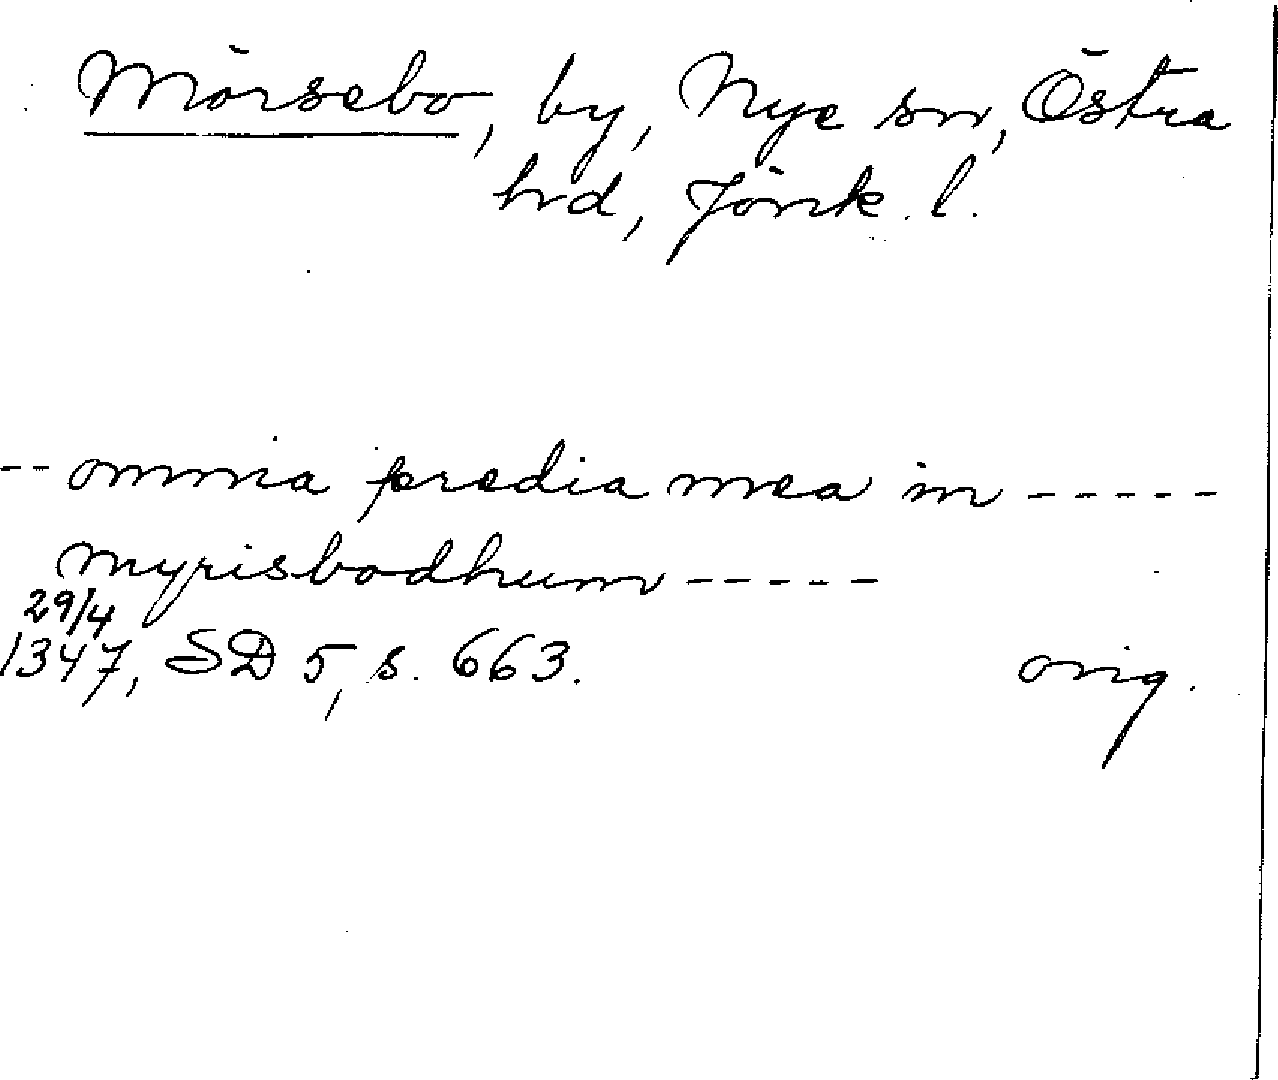 Mörsebo, by, Nye sn, Östra
hd, Jönk. l.
-- omnia predia mea in -----
myrisbodhum -----
29/4
1347, SD 5, s. 663. orig.